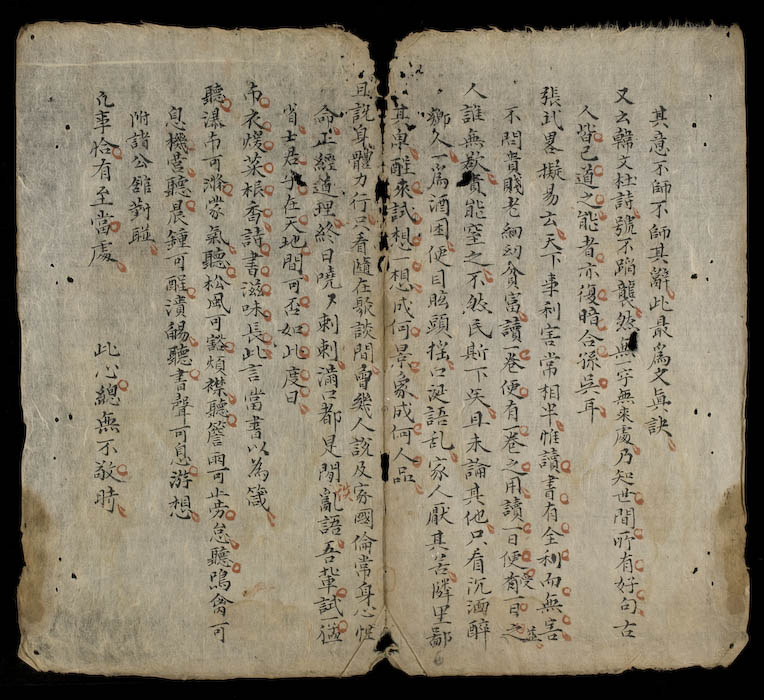 其意不師不師其辭此最爲文眞訣
又云韓文杜詩號不蹈襲然無一字無来處乃知世間所有好句古
人皆已道之能者亦復暗合孫吳耳
張氏畧擬易云天下事利害常相半惟讀書有全利而無害
不問貴賤老幼貧富讀一卷便有一卷之用讀一日便有一日之受益
人誰無欲貴能窒之不然民斯下矣且未論其他只看沉酒醉
鄉久一爲酒困便目眩頭摇口涎語乱家人厭其苦隣里鄙
其卑醒来試想一想成何景象成何人品
且說身體力行只看隨在聚談間曾幾人說及家國倫常身心性
命正經道理終日嘵々刺刺滿口都是閒亂語吾輩試一猛
省士君子在天地間可否如此度日
布衣煖菜根香詩書滋味長此言當書以為箴
聽瀑布可滌蒙氣聽松風可豁煩襟聽簷雨可止劳怠聽鳴禽可
息機营聽晨鍾可醒潰觴聽書聲可息游想
附諸公舘對聯
凢事恰有至當處 此心總無不敬時